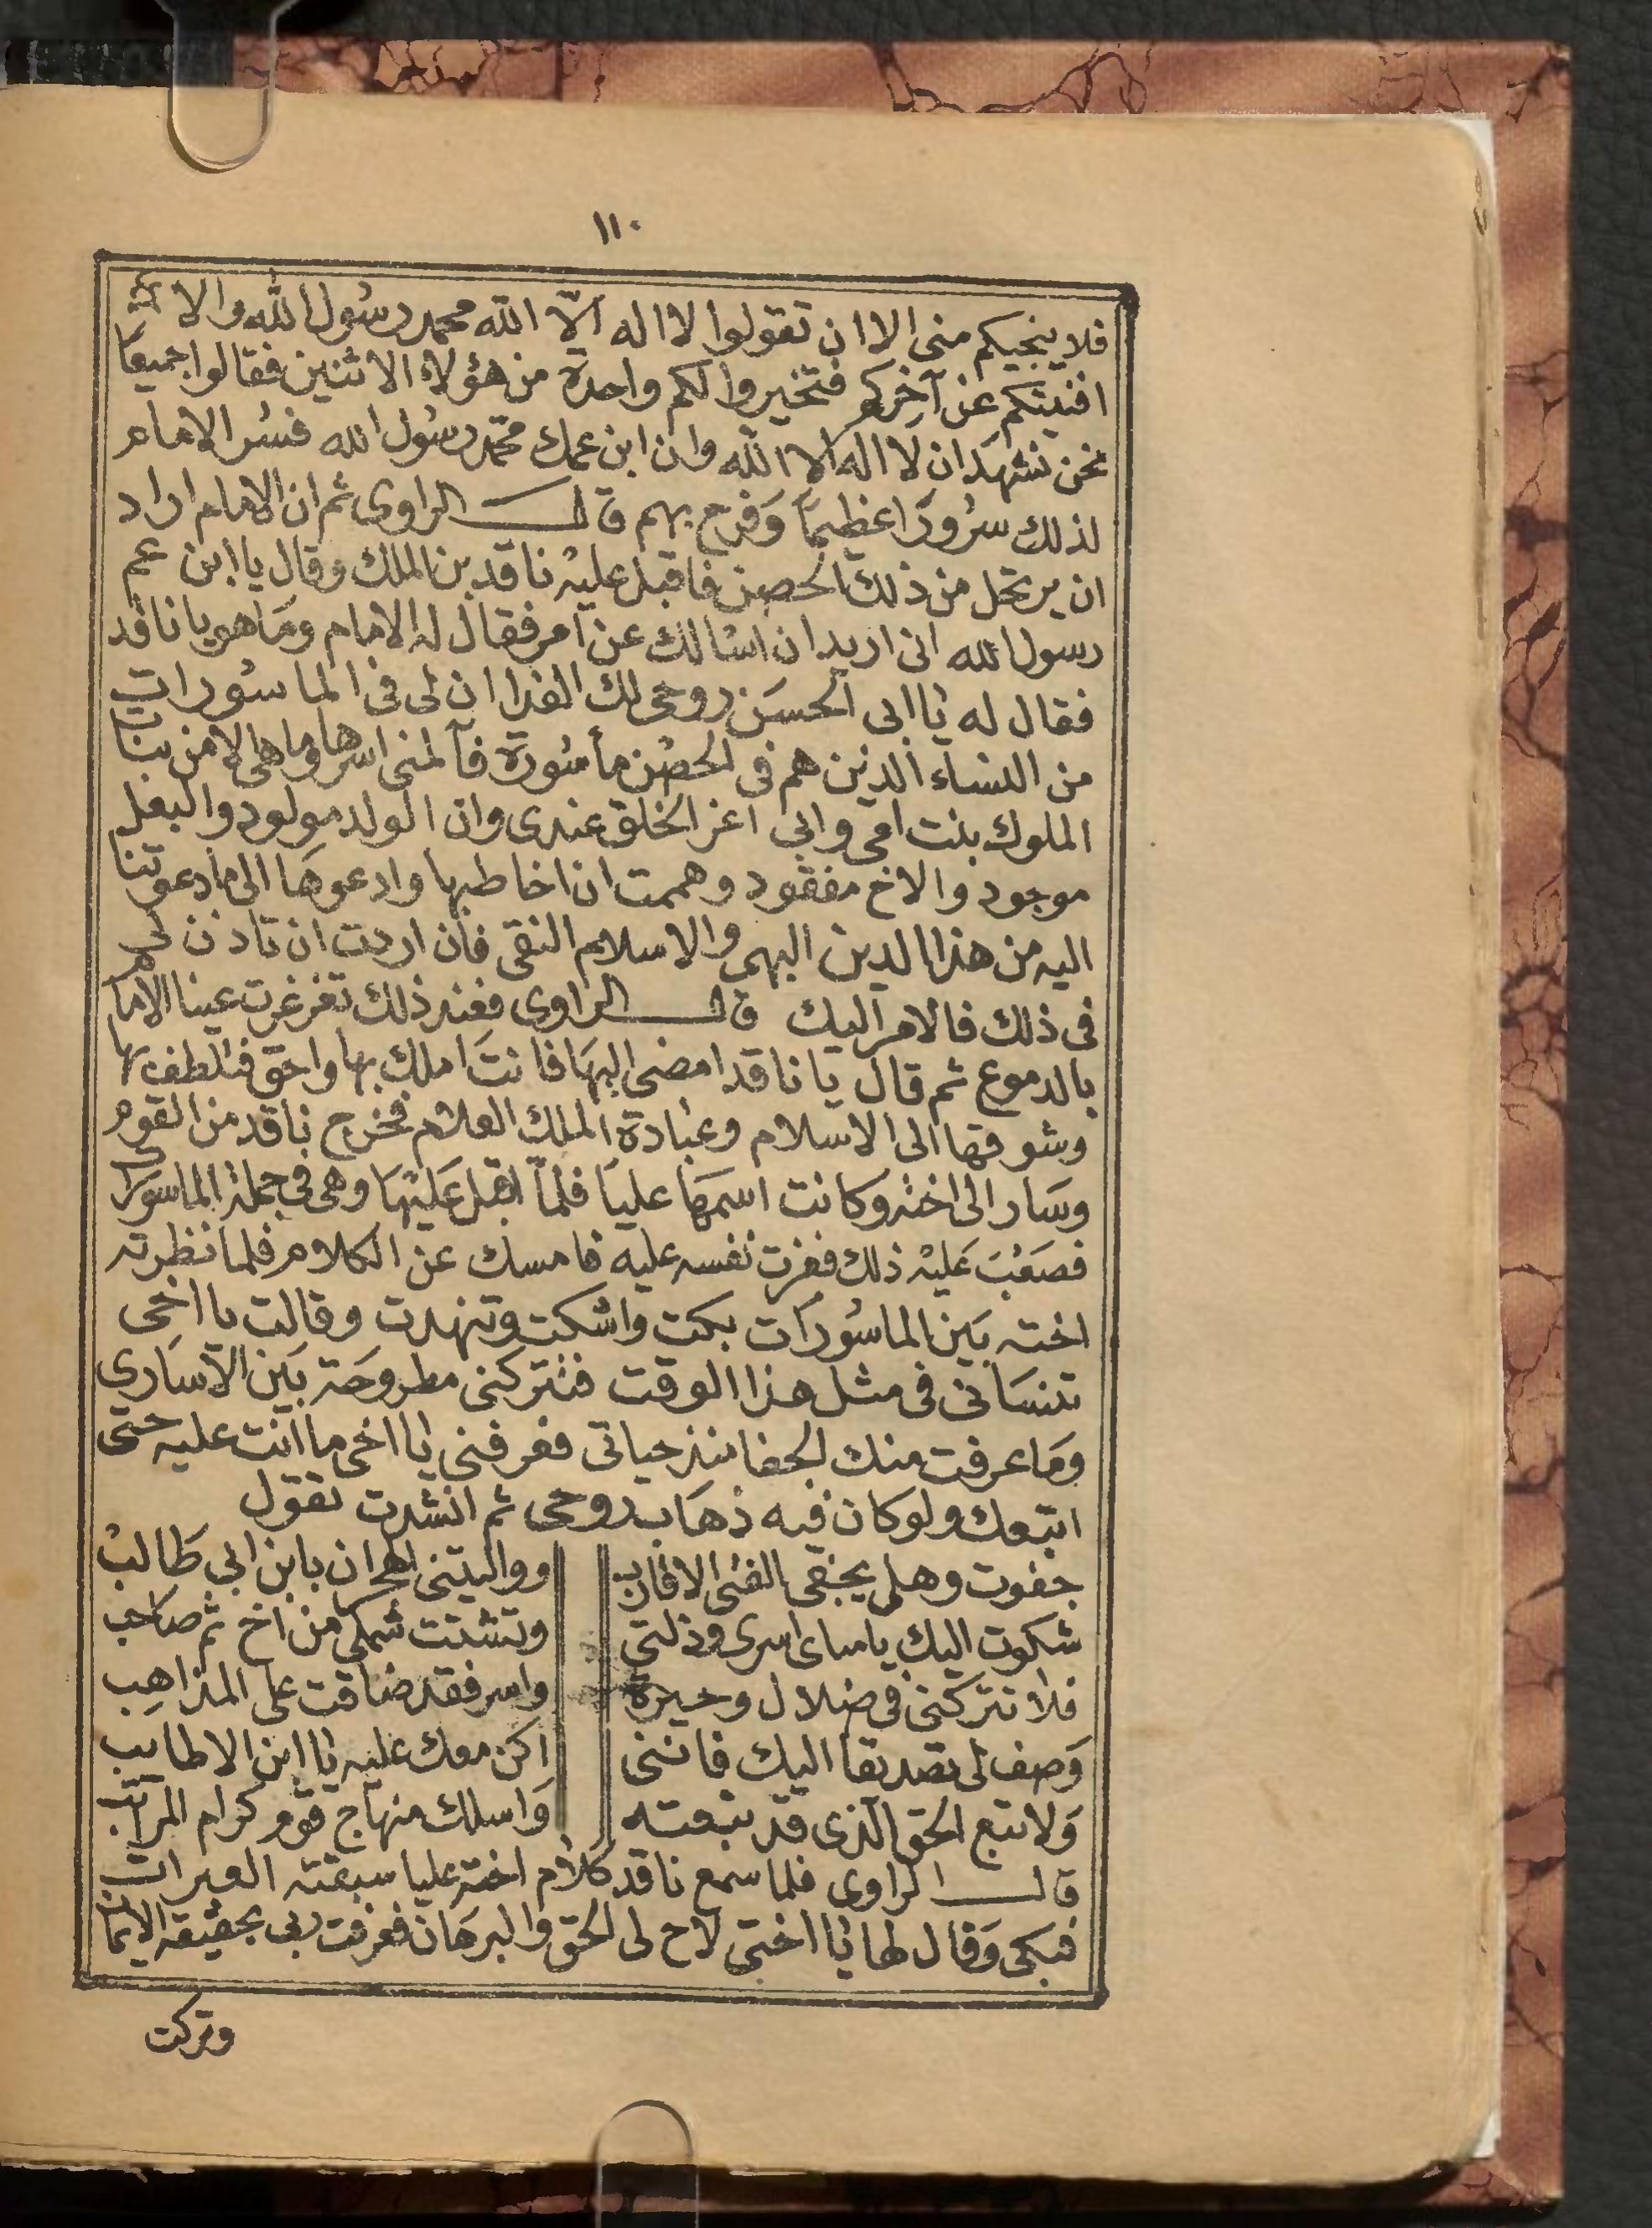 ١١٠
فلا ينجيكم منى الا ان تقولوا لا اله الا الله محمد رسول الله والا
افنيتكم عن آخركم فتخيروا لكم واحدة من هؤلاء الاثنين فقالوا جميعا
نحن نشهد ان لا اله الا الله وان ابن عمك محمد رسول الله فسر الامام
لذلك سرورا عظيما وفرح بهم قال الراوى ثم ان الامام اراد
ان يرتحل من ذلك الحصن فاقبل عليه ناقد بن الملك وقال يا ابن عم
رسول الله انى اريد ان اسالك عن امر فقال له الامام وما هو يا ناقد
فقال له يا ابى الحسن روحى لك الفدا ان لى فى الماسورات
من النساء الذين هم فى الحصن مأسورة فآلمنى اسرها وما هى الا من بنات
الملوك بنت امى وابى اعز الخلق عندى وان الولد مولود والبعل
موجود والاخ مفقود وهممت ان اخاطبها وادعوها الى ما دعوتنا
اليه من هذا الدين البهى والاسلام النقى فان اردت ان تاذن لى
فى ذلك فالامر اليك قال الراوى فعند ذلك تغرغرت عينا الامام
بالدموع ثم قال يا ناقد امضى اليها فانت املك بها واحق فتلطف بها
وشوقها الى الاسلام وعبادة الملك العلام فخرج ناقد من القوم
وسار الى اخته وكانت اسمها عليا فلما اقبل عليها وهى فى جملة الماسورات
فصعب عليه ذلك فعزت نفسه عليه فامسك عن الكلام فلما نظرته
اخته بين الماسورات بكت واشكت وتنهدت وقالت يا اخى
تنسانى فى مثل هذا الوقت فتتركنى مطروحة بين الاسارى
وما عرفت منك الجفا منذ حياتى فعرفنى يا اخى ما انت عليه حتى
اتبعك ولو كان فيه ذهاب روحى ثم انشدت تقول
جفوت وهل يجفى الفتى الاقارب وواليتنى الهجران يا ابن ابى طالب
شكوت اليك يا مناى اسرى وذلتى وتشتت شملى من اخ ثم صاحب
فلا تتركنى فى ضلال وحيرة واسر فقد ضاقت على المذاهب
وصف لى تصديقا اليك فاننى اكن معك عليه يا ابن الاطايب
ولا تتبع الحق الذى قد تبعته واسلك منهاج قوم كرام المراتب
قال الراوى فلما سمع ناقد كلام اخته عليا سبقته العبرات
فبكى وقال لها يا اختى لاح لى الحق والبرهان فعرفت ربى بحقيقة الايمان
وتركت